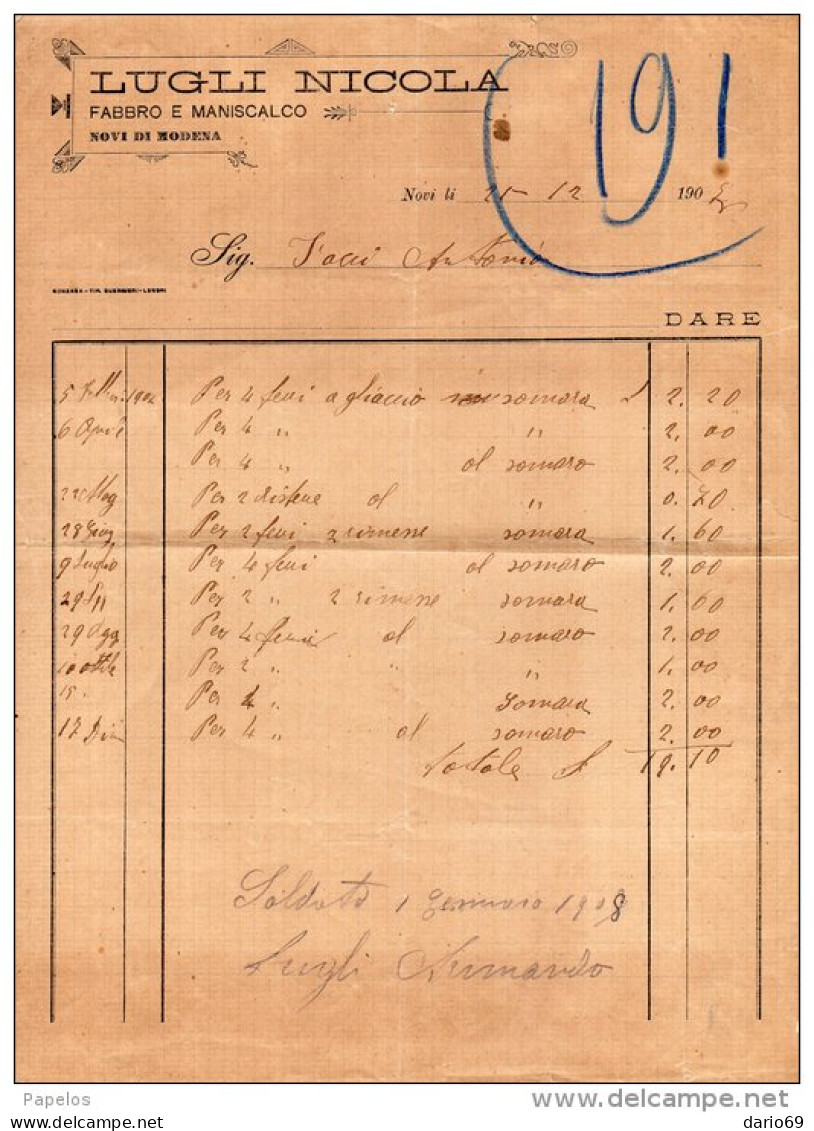 LUGLI NICOLA
FABBRO E MANISCALCO
NOVI DI MODENA
191
Novi li 21 12 190
Sig. Antonio
DARE
Per 4 ferri a gliaccio somara 2.20
6 Aprile Per 4 „ „ 2.00
Per 4 „ al somaro 2.00
22 Mag Per 2 al „ 0.70
28 Giug Per 2 ferri 2 rimesse somara 1.60
9 Luglio Per 4 ferri al somaro 2.00
29 Per 2 „ 2 rimesse somara 1.60
29 Agg Per 4 ferri al somaro 2.00
10 Per 2 „ „ „ 1.00
15 „ Per 4 „ somara 2.00
17 Per 4 „ al somaro 2.00
totale 19.10
Soldato 1 Gennaio 1908
Lugli Armando
Papelos
delcampe.net
dario69